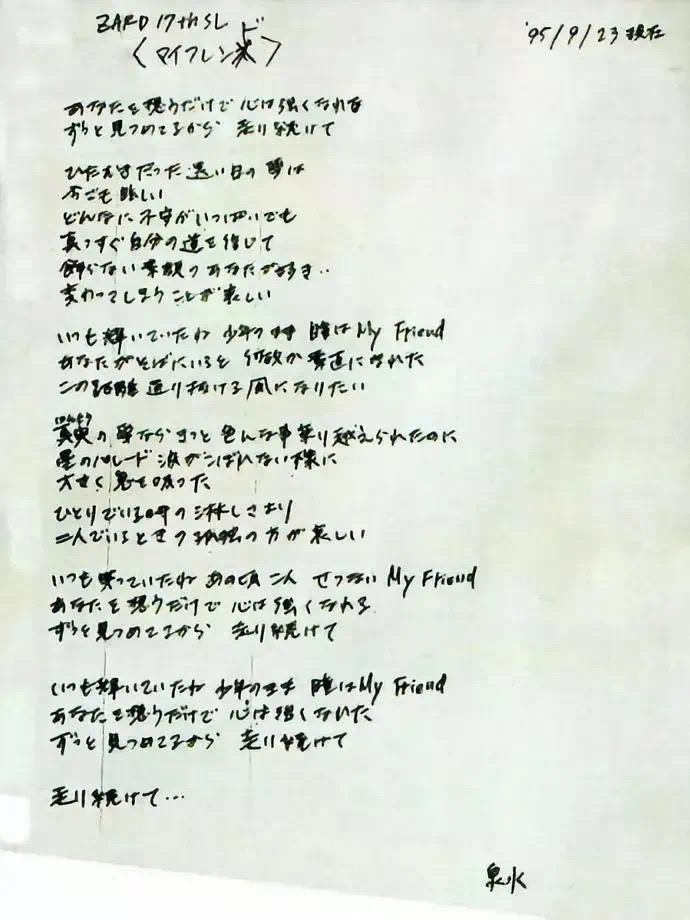 ZARD 17th SL
〈マイフレンド〉
'95/9/23 現在
あなたを想うだけで 心は強くなれる
ずっと見つめてるから 走り続けて
ひたむきだった遠い日の夢は
今でも眩しい
どんなに不安がいっぱいでも
真っすぐ自分の道を信じて
飾らない素顔のあなたが好き‥
変わってしまうことが哀しい
いつも輝いていたね 少年のまま 瞳はMy Friend
あなたがそばにいると 何故か素直になれた
この距離通り抜ける風になりたい
ほんとう
真実の夢ならきっと色んな事乗り越えられたのに
星のパレード 涙がこぼれない様に
大きく息を吸った
ひとりでいる時の淋しさより
二人でいるときの孤独の方が哀しい
いつも笑っていたね あの頃 二人 せつない My Friend
あなたを想うだけで 心は強くなれる
ずっと見つめてるから 走り続けて
いつも輝いていたね 少年のまま 瞳はMy Friend
あなたを想うだけで 心は強くなれた
ずっと見つめてるから 走り続けて
走り続けて…
泉水